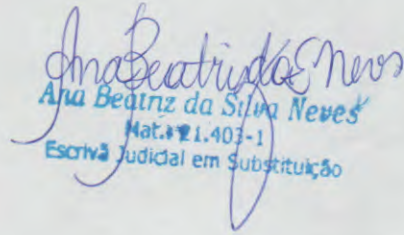 Ana Beatriz da S Neves
Ana Beatriz da Silva Neves
Mat. 21.403-1
Escrivã Judicial em Substituição